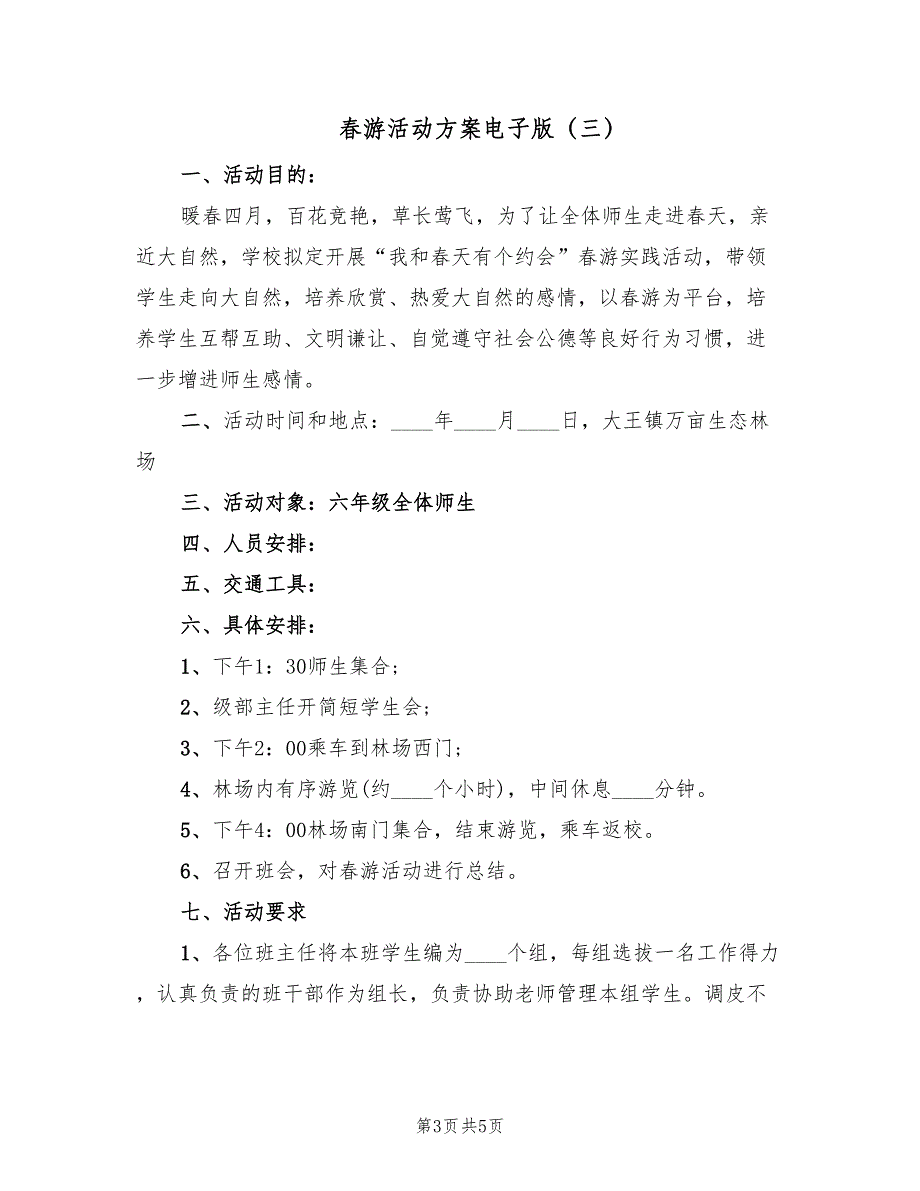 春游活动方案电子版（三）
一、活动目的：
暖春四月，百花竞艳，草长莺飞，为了让全体师生走进春天，亲
近大自然，学校拟定开展“我和春天有个约会”春游实践活动，带领
学生走向大自然，培养欣赏、热爱大自然的感情，以春游为平台，培
养学生互帮互助、文明谦让、自觉遵守社会公德等良好行为习惯，进
一步增进师生感情。
二、活动时间和地点：____年____月____日，大王镇万亩生态林
场
三、活动对象：六年级全体师生
四、人员安排：
五、交通工具：
六、具体安排：
1、下午1：30师生集合;
2、级部主任开简短学生会;
3、下午2：00乘车到林场西门;
4、林场内有序游览(约____个小时)，中间休息____分钟。
5、下午4：00林场南门集合，结束游览，乘车返校。
6、召开班会，对春游活动进行总结。
七、活动要求
1、各位班主任将本班学生编为____个组，每组选拔一名工作得力
，认真负责的班干部作为组长，负责协助老师管理本组学生。调皮不
第3页共5页